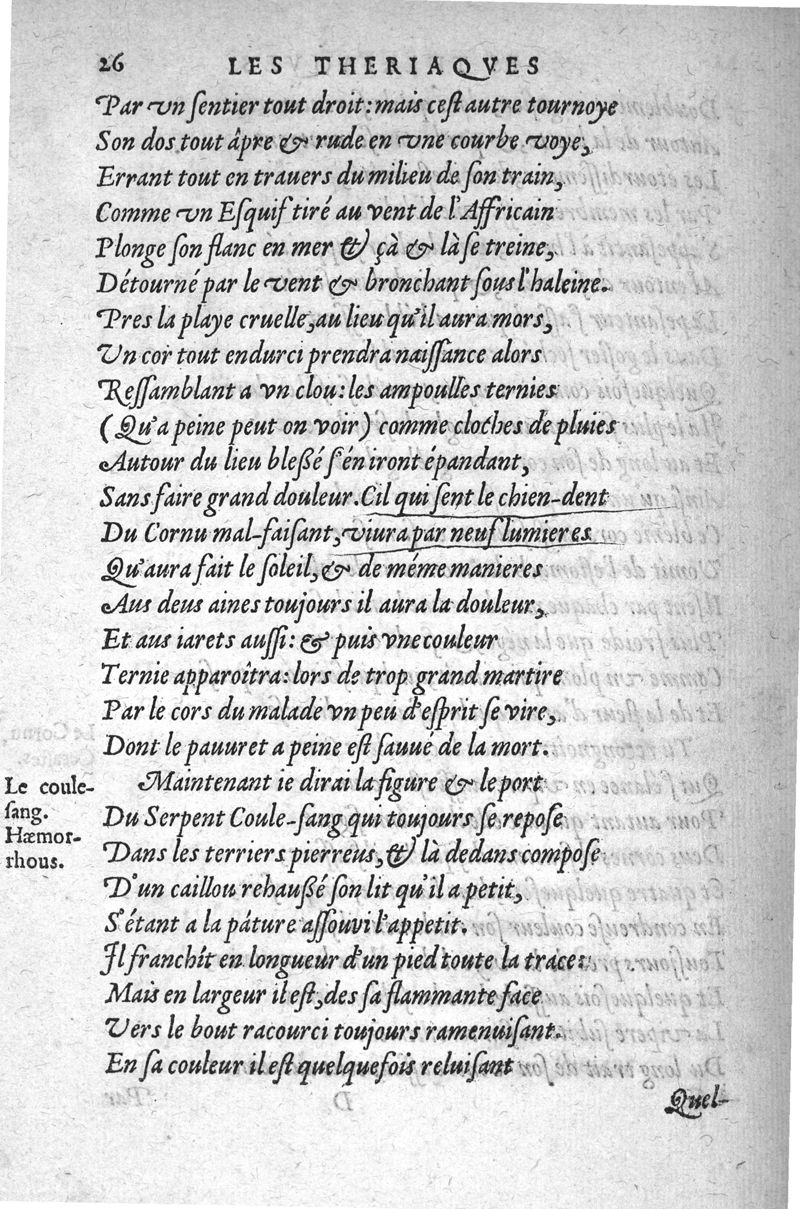 26 LES THERIAQVES
Par vn ſentier tout droit: mais ceſt autre tournoye
Son dos tout âpre & rude en vne courbe voye,
Errant tout en trauers du milieu de ſon train,
Comme vn Eſquif tiré au vent de l'Affricain
Plonge ſon flanc en mer & çà & là ſe treine,
Détourné par le vent & bronchant ſous l'haleine.
Pres la playe cruelle, au lieu qu'il aura mors,
Vn cor tout endurci prendra naiſſance alors
Reſſamblant a vn clou: les ampoulles ternies
(Qu'a peine peut on voir) comme cloches de pluies
Autour du lieu bleßé ſ'én iront épandant,
Sans faire grand douleur. Cil qui ſent le chien-dent
Du Cornu mal-faiſant, viura par neuf lumieres
Qu'aura fait le ſoleil, & de méme manieres
Aus deus aines toujours il aura la douleur,
Et aus iarets auſſi: & puis vne couleur
Ternie apparoîtra: lors de trop grand martire
Par le cors du malade vn peu d'eſprit ſe vire,
Dont le pauuret a peine eſt ſauué de la mort.
Le coule-
ſang.
Hæmor-
rhous.
Maintenant ie dirai la figure & le port
Du Serpent Coule-ſang qui toujours ſe repoſe
Dans les terriers pierreus, & là dedans compoſe
D'un caillou rehaußé ſon lit qu'il a petit,
S'étant a la pâture aſſouvi l'appetit.
Il franchît en longueur d'un pied toute la trace:
Mais en largeur il eſt, des ſa flammante face
Vers le bout racourci toujours ramenuiſant.
En ſa couleur il eſt quelquefois reluiſant
Quel-